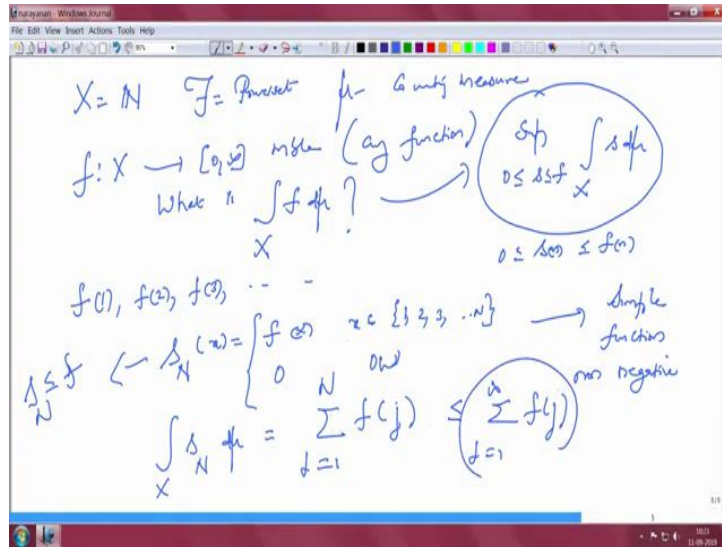 narayanan - Windows Journal
File Edit View Insert Actions Tools Help
X = ℕ  ℱ = Powerset  μ - Counting measure
f: X → [0,∞] mble (any function)
What is ∫_X f dμ ?
Sup_{0≤s≤f} ∫_X s dμ
0 ≤ s(x) ≤ f(x)
f(1), f(2), f(3), ... -
s_N ≤ f ← s_N(x) = { f(x)  x ∈ {1, 2, 3, ...N}
0  ow
→ Simple function non negative
∫_X s_N dμ = ∑_{j=1}^{N} f(j) ≤ ∑_{j=1}^{∞} f(j)
10:23
11-09-2019